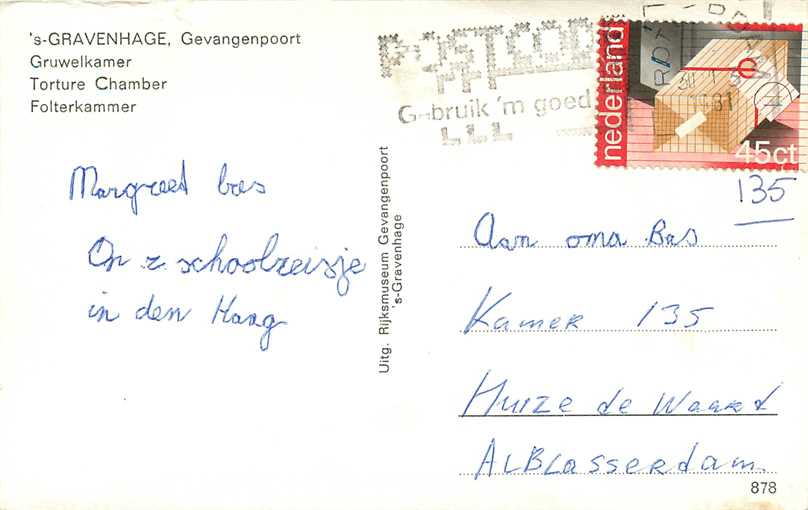 's-GRAVENHAGE, Gevangenpoort
Gruwelkamer
Torture Chamber
Folterkammer
POSTCODE
Gebruik 'm goed
nederland
45ct
135
Margreet bas
Op z schoolreisje
in den Haag
Uitg. Rijksmuseum Gevangenpoort
's-Gravenhage
Aan oma Bas
Kamer 135
Huize de Waard
ALBLasserdam
878